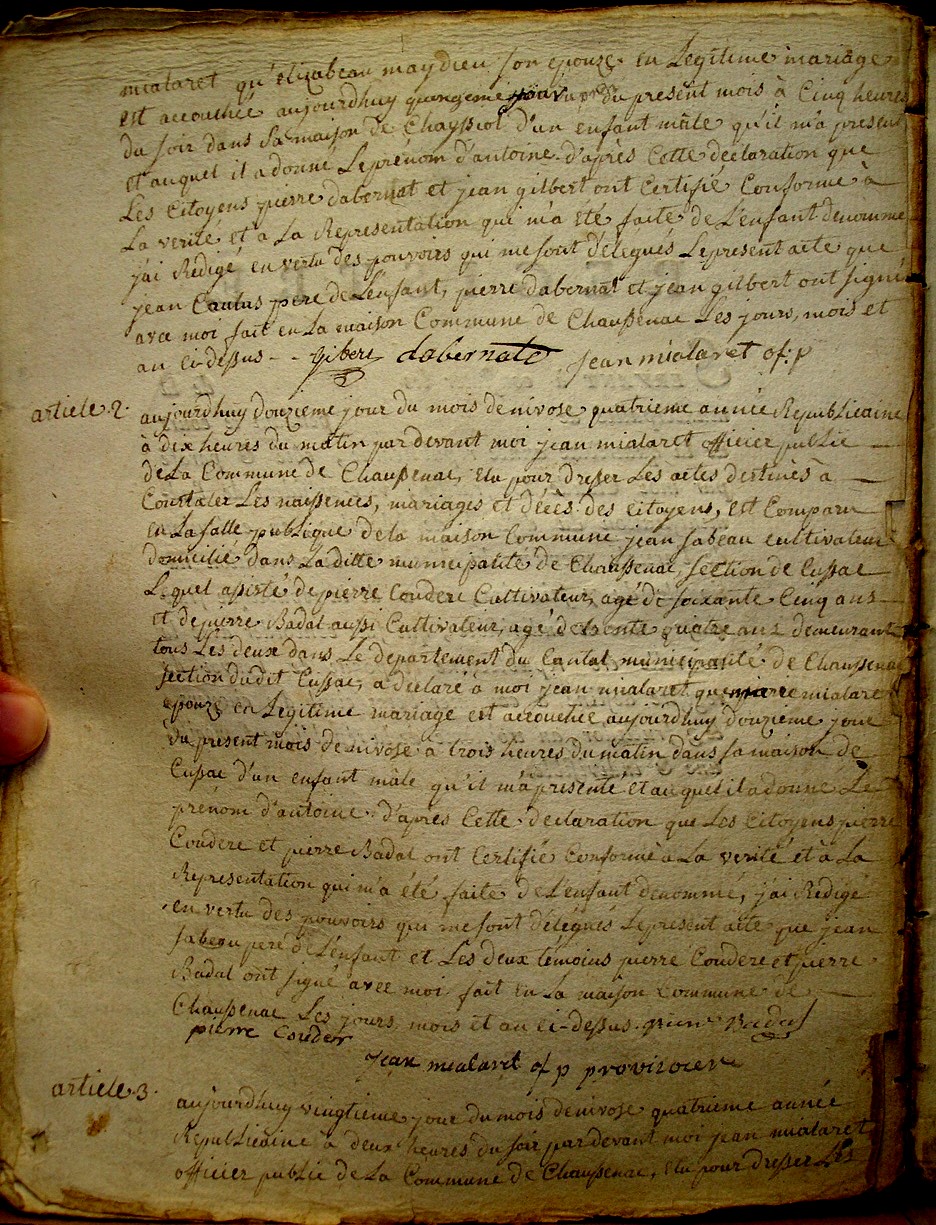 mialaret qu'elizabeau maydieu son epouze en Legitime mariage
est accouchée aujourdhuy du present mois à Cinq heures
du soir dans sa maison de Chayssiol d'un enfant mâle qu'il m'a presenté
et auquel il a donné Le prénom d'antoine d'après Cette declaration que
Les Citoyens pierre dabernat et jean gilbert ont Certifié Conforme à
La verité et a La Representation qui m'a été faite de L'enfant denommé
j'ai Redigé en vertu des pouvoirs qui me sont délegués Le present acte que
jean pere de L'enfant, pierre dabernat et jean gilbert ont signé
avec moi fait en La maison Commune de Chaussenac Les jours, mois et
an ci-dessus - - gibert dabernate jean mialaret of: p
article 2. aujourdhuy douzieme jour du mois de nivose quatrieme année Republicaine
à dix heures du matin par devant moi jean mialaret officier public
de La Commune de Chaussenac, elu pour dresser Les actes destinés à
Constater Les naissences, mariages et décès des citoyens, est Comparu
en La salle publique de la maison Commune jean sabeau cultivateur
domicilié dans La ditte municipalité de Chaussenac, section de Cussac
Lequel assisté de pierre Couderc Cultivateur, agé de soixante Cinq ans
et de pierre Badal aussi Cultivateur, agé de trente quatre ans demeurant
tous Les deux dans Le departement du Cantal, municipalité de Chaussenac
section dudit Cussac, a déclaré à moi jean mialaret que marie mialare
epouze en Legitime mariage est accouchée aujourdhuy douzieme jour
du present mois de nivose à trois heures du matin dans sa maison de
Cussac d'un enfant mâle qu'il m'a presenté et auquel il a donne Le
prénom d'antoine. d'apres Cette declaration que Les Citoyens pierre
Couderc et pierre Badal ont Certifié Conforme à La verité et à La
Representation qui m'a été faite de L'enfant denommé, j'ai Redigé
en vertu des pouvoirs qui me sont délégués Le present acte que jean
sabeau pere de L'enfant et Les deux témoins pierre Couderc et pierre
Badal ont signé avec moi fait en La maison Commune de
Chaussenac Les jours, mois et an ci-dessus. pierre Badal
pierre Couder
jean mialaret of p provisoire
article 3. aujourdhuy vingtieme jour du mois de nivose quatrieme année
Republicaine à deux heures du soir par devant moi jean mialaret
officier public de La Commune de Chaussenac, elu pour dresser Les